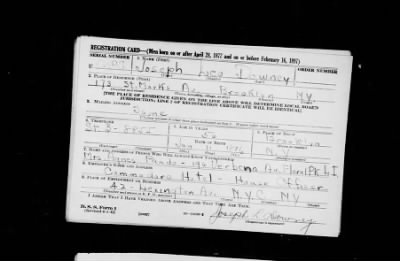 REGISTRATION CARD—(Men born on or after April 28, 1877 and on or before February 16, 1897)
SERIAL NUMBER 1. NAME (Print) ORDER NUMBER
Joseph Downey
2. PLACE OF RESIDENCE (Print)
173 St Marks Av. Brooklyn N.Y.
[THE PLACE OF RESIDENCE GIVEN ON THE LINE ABOVE WILL DETERMINE LOCAL BOARD
JURISDICTION; LINE 2 OF REGISTRATION CERTIFICATE WILL BE IDENTICAL]
3. MAILING ADDRESS
Same
4. TELEPHONE 5. AGE IN YEARS 6. PLACE OF BIRTH
Brooklyn
7. NAME AND ADDRESS OF PERSON WHO WILL ALWAYS KNOW YOUR ADDRESS
Mrs Agnes Verbena Av. Floral Pk L.I
8. EMPLOYER'S NAME AND ADDRESS
Commodore Hotel - House Officer
9. PLACE OF EMPLOYMENT OR BUSINESS
42 - Lexington Av. N.Y.C. NY
I AFFIRM THAT I HAVE VERIFIED ABOVE ANSWERS AND THAT THEY ARE TRUE.
D. S. S. Form 1
Joseph L. Downey